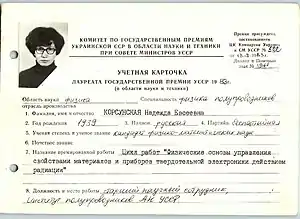 Премия присуждена
постановлением
ЦК Компартии Украины
и СМ УССР №
КОМИТЕТ ПО ГОСУДАРСТВЕННЫМ ПРЕМИЯМ
УКРАИНСКОЙ ССР В ОБЛАСТИ НАУКИ И ТЕХНИКИ
ПРИ СОВЕТЕ МИНИСТРОВ УССР
Диплом и Почетный
знак №
УЧЕТНАЯ КАРТОЧКА
ЛАУРЕАТА ГОСУДАРСТВЕННОЙ ПРЕМИИ УССР 19 г.
(в области науки и техники)
Область науки физика Специальность физика полупроводников
отрасль производства
1. Фамилия, имя и отчество КОРСУНСКАЯ Надежда Евсеевна
2. Год рождения 1939 3. Национ. русская 4. Партийн. беспартийная
5. Ученая степень и ученое звание кандидат физико-математических наук
6. Почетные звания
7. Название премированной работы Цикл работ "Физические основы управления
свойствами материалов и приборов твердотельной электроники действием
радиации"
8. Должность и место работы старший научный сотрудник,
Институт полупроводников АН УССР